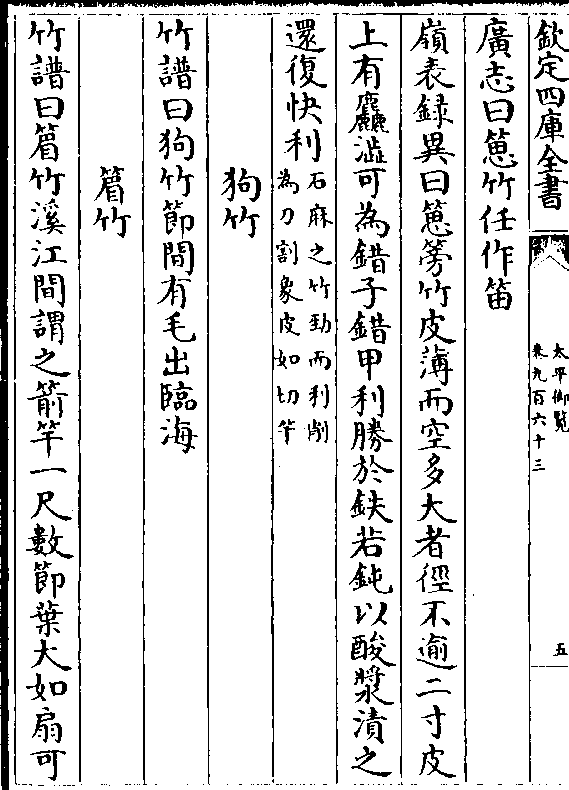 欽定四庫全書
太平御覧
卷九百六十三
五
廣志曰箟竹任作笛
嶺表録異曰箟簩竹皮薄而空多大者徑不逾二寸皮
上有麤澁可為錯子錯甲利勝於鉄若鈍以酸漿漬之
還復快利
石麻之竹勁而利削
為刀割象皮如切芋
狗竹
竹譜曰狗竹節間有毛出臨海
䈥竹
竹譜曰䈥竹溪江間謂之箭竿一尺數節葉大如扇可